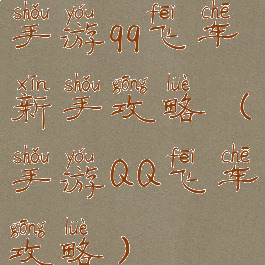 shǒu yóu fēi chē
手游qq飞车
xīn shǒu gōng lüè
新手攻略（
shǒu yóu fēi chē
手游QQ飞车
gōng lüè
攻略）